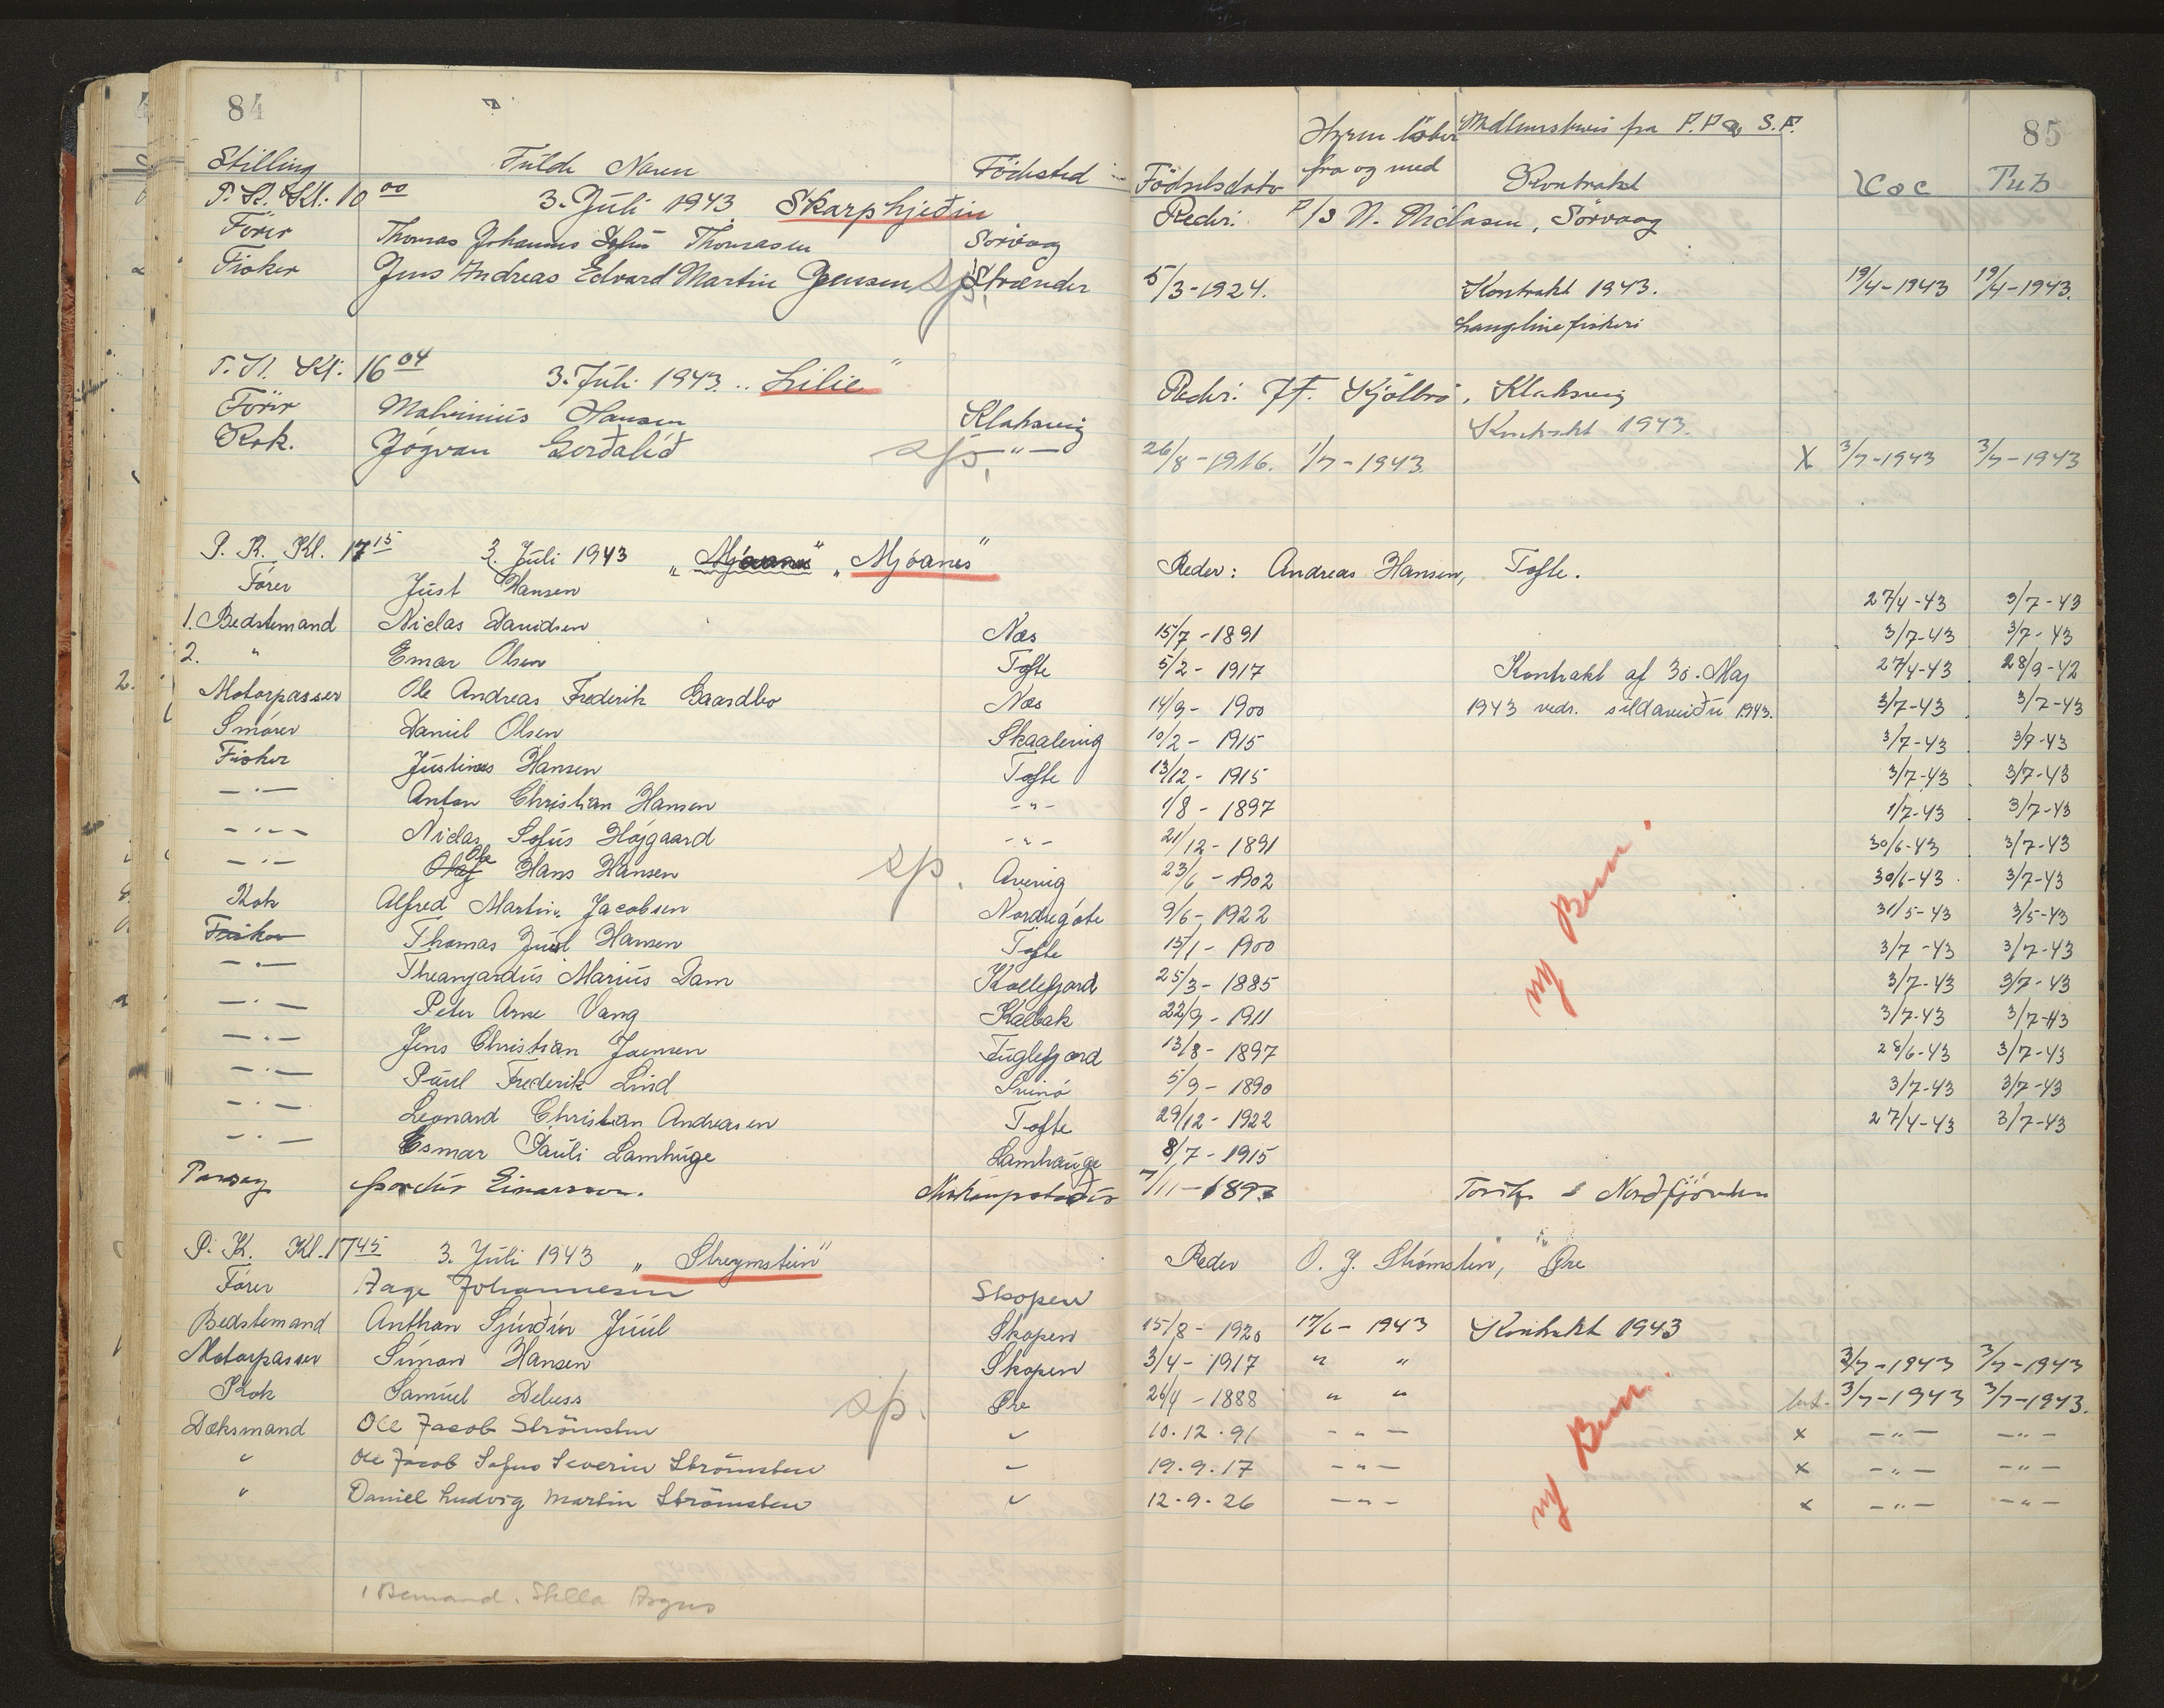 84
Stilling Fulde Navn Födested Födselsdato Hyren löber fra og med Kontrakt Vac Tub 85
P. K. Kl. 10 00 3. Júli 1943 Skarphjeðin Reder: P/S N. Niclasen, Sörvaag
Förer Thomas Johannes Thomasen Sörvaag
Fisker Jens Andreas Edvard Martin Jensen sp. Strænder 5/3-1924. Kontrakt 1943. 19/4-1943 19/4-1943.
Langlinefiskeri
Kl. 16 04 3. Júli 1943 "Lilie" Reder: J.F. Kjölbro, Klaksvig
Förer Malvinius Hansen Klaksvig Kontrakt 1943.
Kok. Jógvan sp. -"- 26/8-1916. 1/7-1943. X 3/7-1943 3/7-1943
P. K. Kl. 17 15 3. Júli 1943 "Mjóanes" Reder: Andreas Hansen, Tofte.
Förer Júst Hansen 27/4-43 3/7-43
1. Bedstemand Niclas Davidsen Næs 15/7-1891 3/7-43 3/7-43
2. " Emar Olsen Tofte 5/2-1917 Kontrakt af 30. Maj 27/4-43 28/9-42
Motorpasser Ole Andreas Frederik Gaardbo Næs 14/9-1900 1943 vedr. sildaveiðu 1943. 3/7-43 3/7-43
Smörer Daniel Olsen Skaalevig 10/2-1915 3/7-43 3/7-43
Fisker Jústinus Hansen Tofte 13/12-1915 3/7-43 3/7-43
-"- Anton Christian Hansen -"- 1/8-1897 1/7-43 3/7-43
-"- Niclas Sofús Höjgaard -"- 21/12-1891 30/6-43 3/7-43
-"- Olaf Ole Hans Hansen sp. Arvevig 23/6-1902 30/6-43 3/7-43
Kok Alfred Martin Jacobsen Nordregöte 9/6-1922 31/5-43 3/5-43
Fisker Thomas Júul Hansen Tofte 15/1-1900 3/7-43 3/7-43
-"- Marius Dam Kollefjord 25/3-1885 3/7-43 3/7-43
-"- Peter Arne Vang Kalbak 22/9-1911 3/7-43 3/7-43
-"- Jens Christian Joensen Fuglefjord 13/8-1897 28/6-43 3/7-43
-"- Paul Frederik Lind Svinö 5/9-1890 3/7-43 3/7-43
-"- Leonard Christian Andreasen Tofte 29/12-1922 27/4-43 3/7-43
-"- Esmar Pauli Lamhúge Lamhauge 8/7-1915
ny Bem.
Einarsson. 7/11-1897
P. K. Kl. 17 45 3. Júli 1943 "Streymstein" Reder O. J. Strömsten, Öre
Förer Aage Johannesen Skopen
Bedstemand Anthon Sjúrðúr Júúl Skopen 15/8-1920 17/6-1943 Kontrakt 1943
Motorpasser Símon Hansen Skopen 3/4-1917 " " 3/7-1943 3/7-1943
Kok Samúel Debess sp. Öre 26/4-1888 " " 3/7-1943 3/7-1943.
Dæksmand Ole Jacob Strömsten " 10.12.91 -"- x -"- -"-
" Ole Jacob Sofus Severin Strömsten " 19.9.17 -"- x -"- -"-
" Daniel Ludvig Martin Strömsten " 12.9.26 -"- x -"- -"-
ny Bem.
Stella Argus